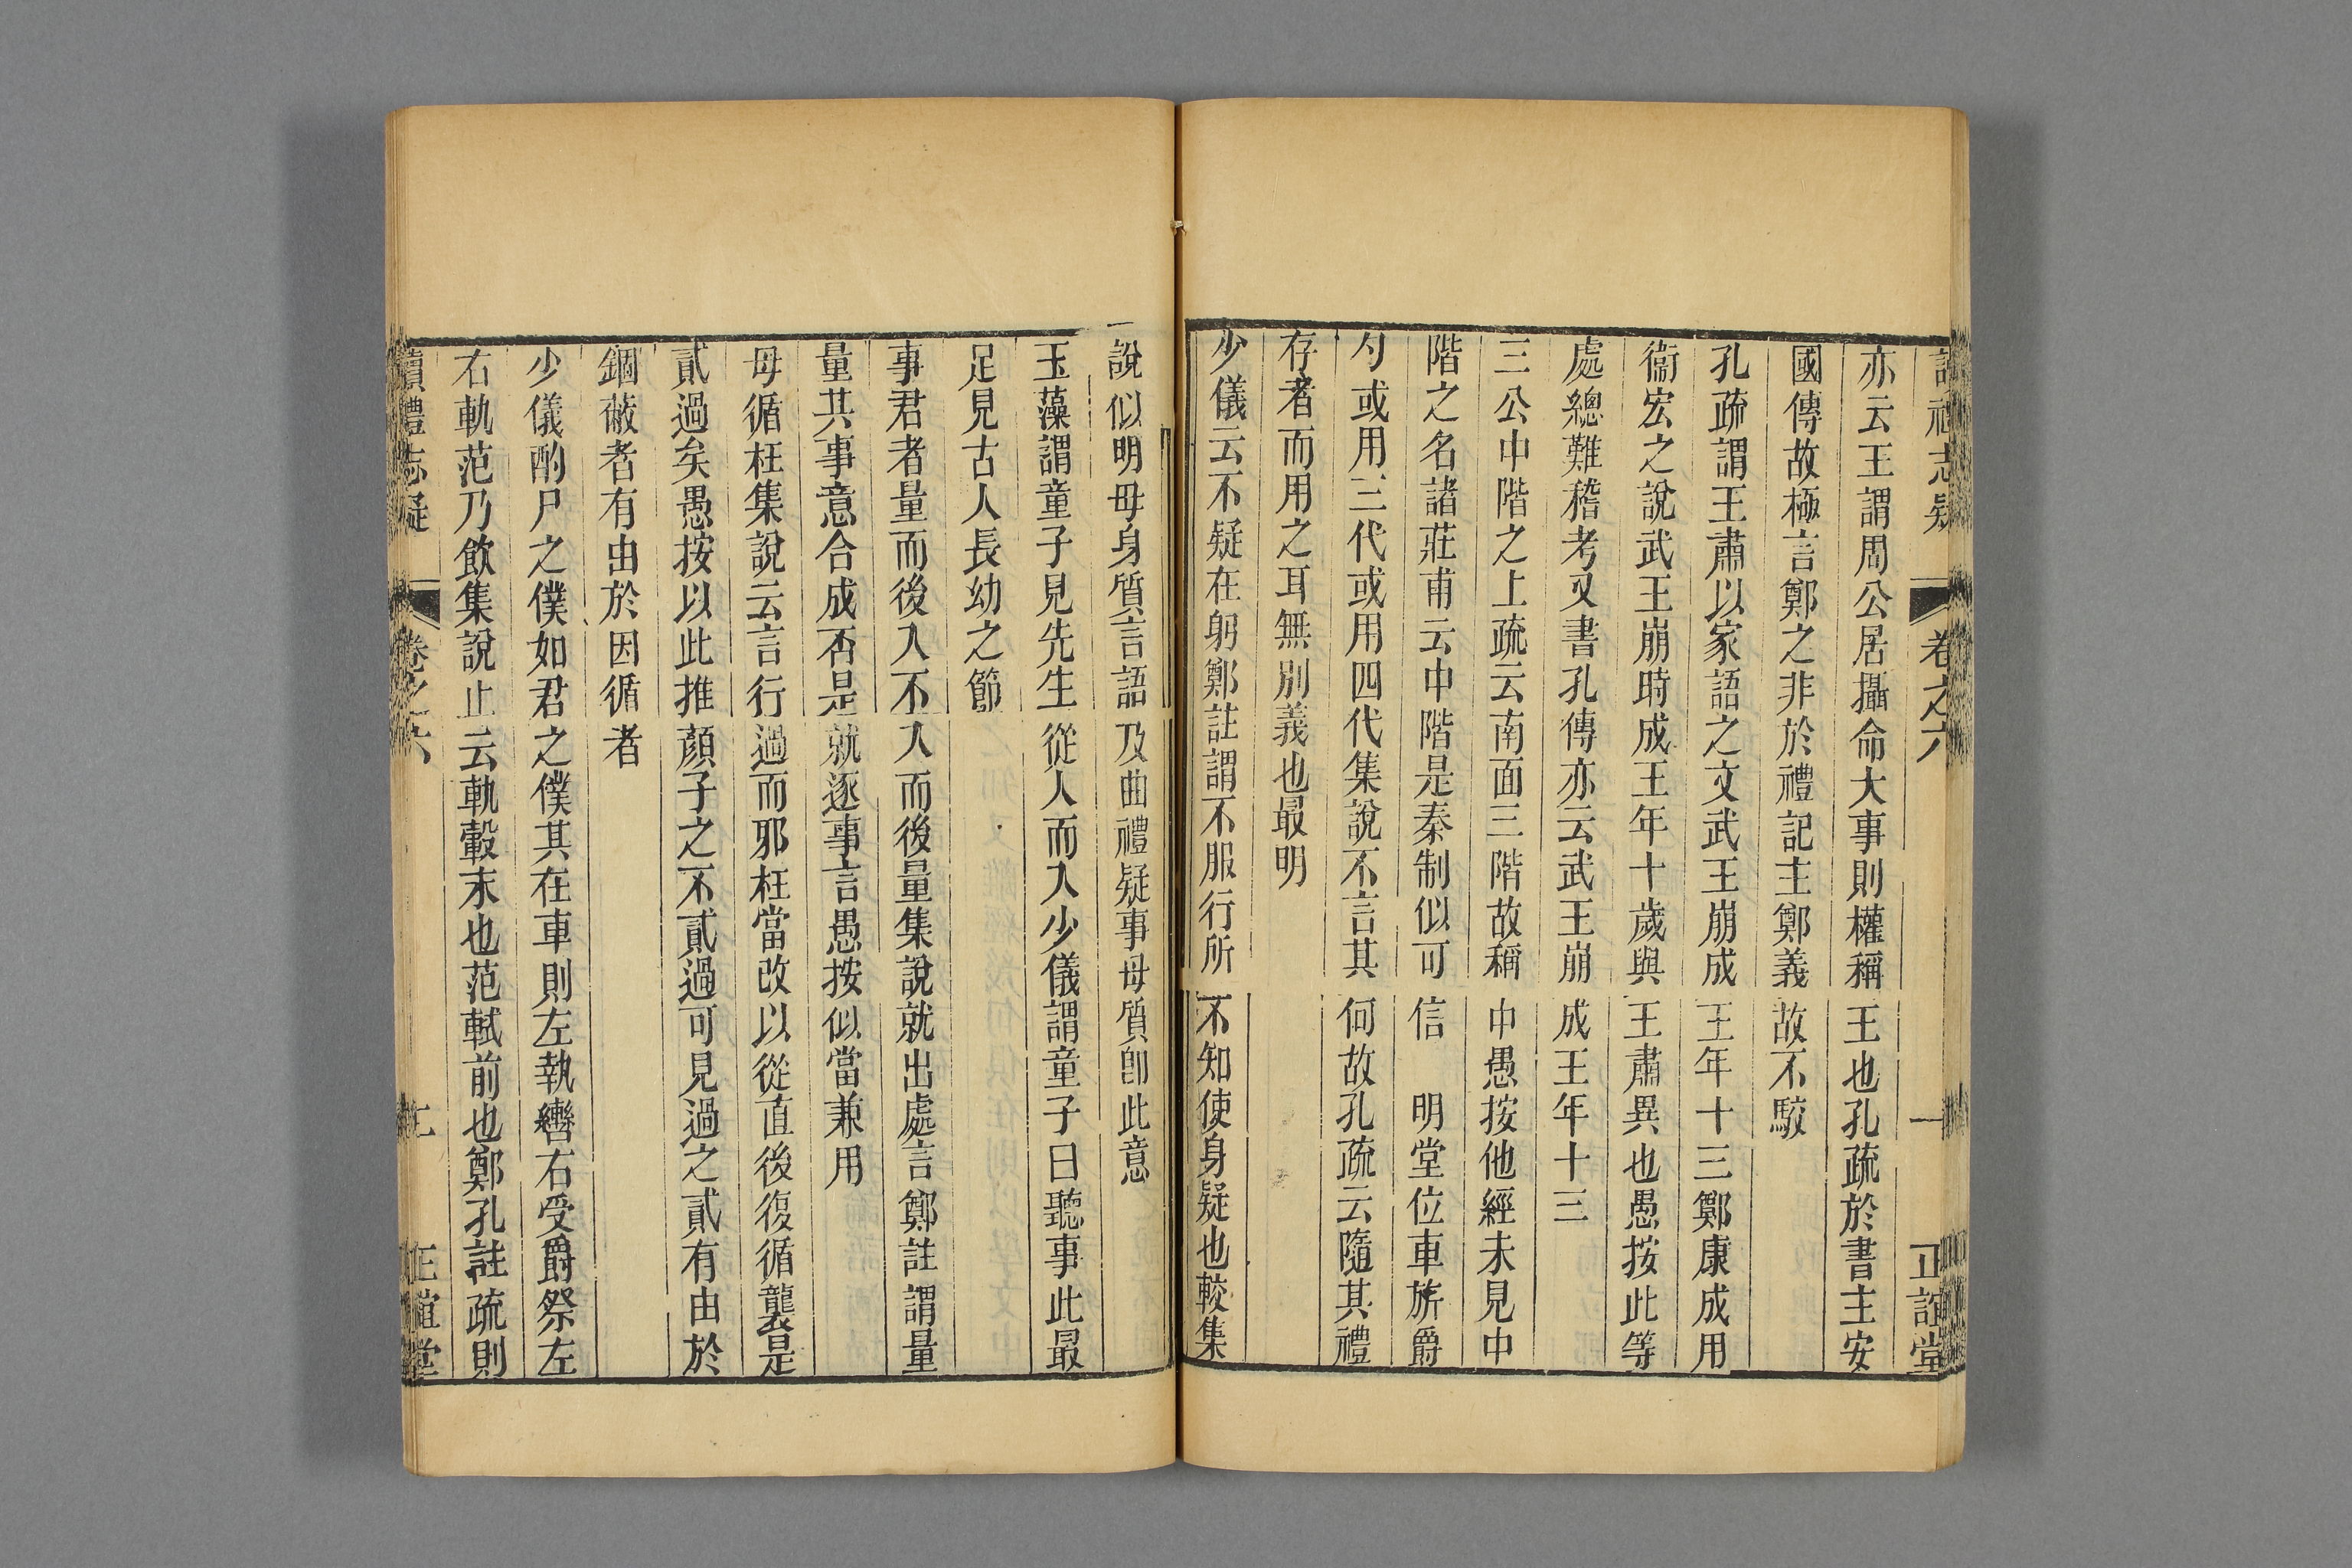 讀禮志疑 卷之六 一 正誼堂
亦云王謂周公居攝命大事則權稱王也孔疏於書主安
國傳故極言鄭之非於禮記主鄭義故不駮
孔疏謂王肅以家語之文武王崩成王年十三鄭康成用
衞宏之說武王崩時成王年十歲與王肅異也愚按此等
處總難稽考又書孔傳亦云武王崩成王年十三
三公中階之上疏云南面三階故稱中愚按他經未見中
階之名諸莊甫云中階是秦制似可信 明堂位車旂爵
勺或用三代或用四代集說不言其何故孔疏云隨其禮
存者而用之耳無別義也最明
少儀云不疑在躬鄭註謂不服行所不知使身疑也較集
說似明毋身質言語及曲禮疑事毋質卽此意
玉藻謂童子見先生從人而入少儀謂童子曰聽事此最
足見古人長幼之節
事君者量而後入不入而後量集說就出處言鄭註謂量
量其事意合成否是就逐事言愚按似當兼用
毋循枉集說云言行過而邪枉當改以從直後復循襲是
貳過矣愚按以此推顏子之不貳過可見過之貳有由於
錮蔽者有由於因循者
少儀酌尸之僕如君之僕其在車則左執轡右受爵祭左
右軌范乃飲集說止云軌轂末也范軾前也鄭孔註疏則
讀禮志疑 卷之六 正誼堂